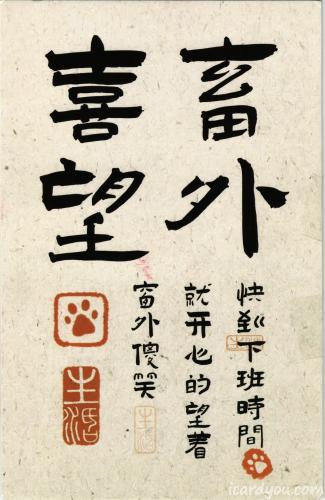 畜外
喜望
快到下班時間
就開心的望着
窗外傻笑
生活
icardyou.com